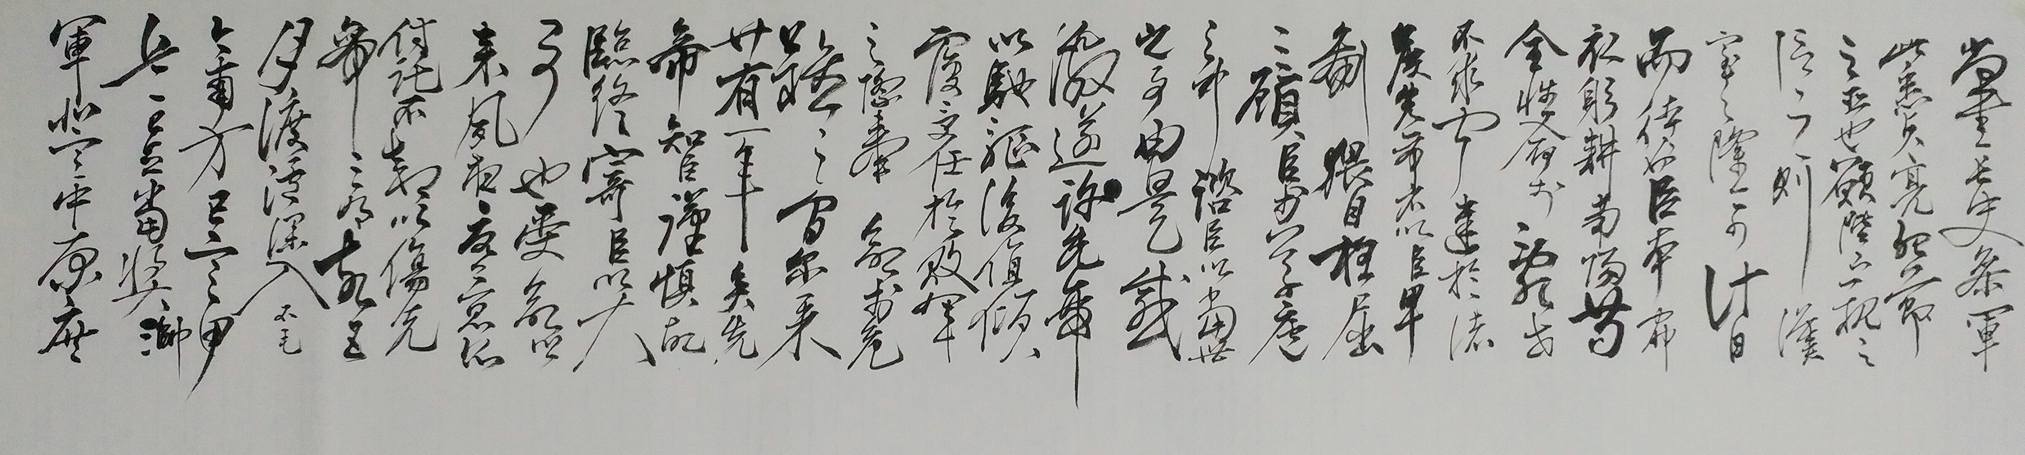 尚書長史參軍
此悉貞亮死節
之臣也願陛下親之
信之則漢
室之隆可計日
而待也臣本布
衣躬耕南陽苟
全性命於亂世
不求聞達於諸
侯先帝不以臣卑
鄙猥自枉屈
三顧臣於草廬
之中諮臣以當世
之事由是感
激遂許先帝
以馳驅後值傾
覆受任於敗軍
之際奉命於危
難之間爾來
廿有一年矣先
帝知臣謹慎故
臨終寄臣以大
事也受命以
來夙夜憂嘆恐
付託不効以傷先
帝之明故五
月渡瀘深入不毛
今南方已定甲
兵已足當獎帥
軍北定中原庶